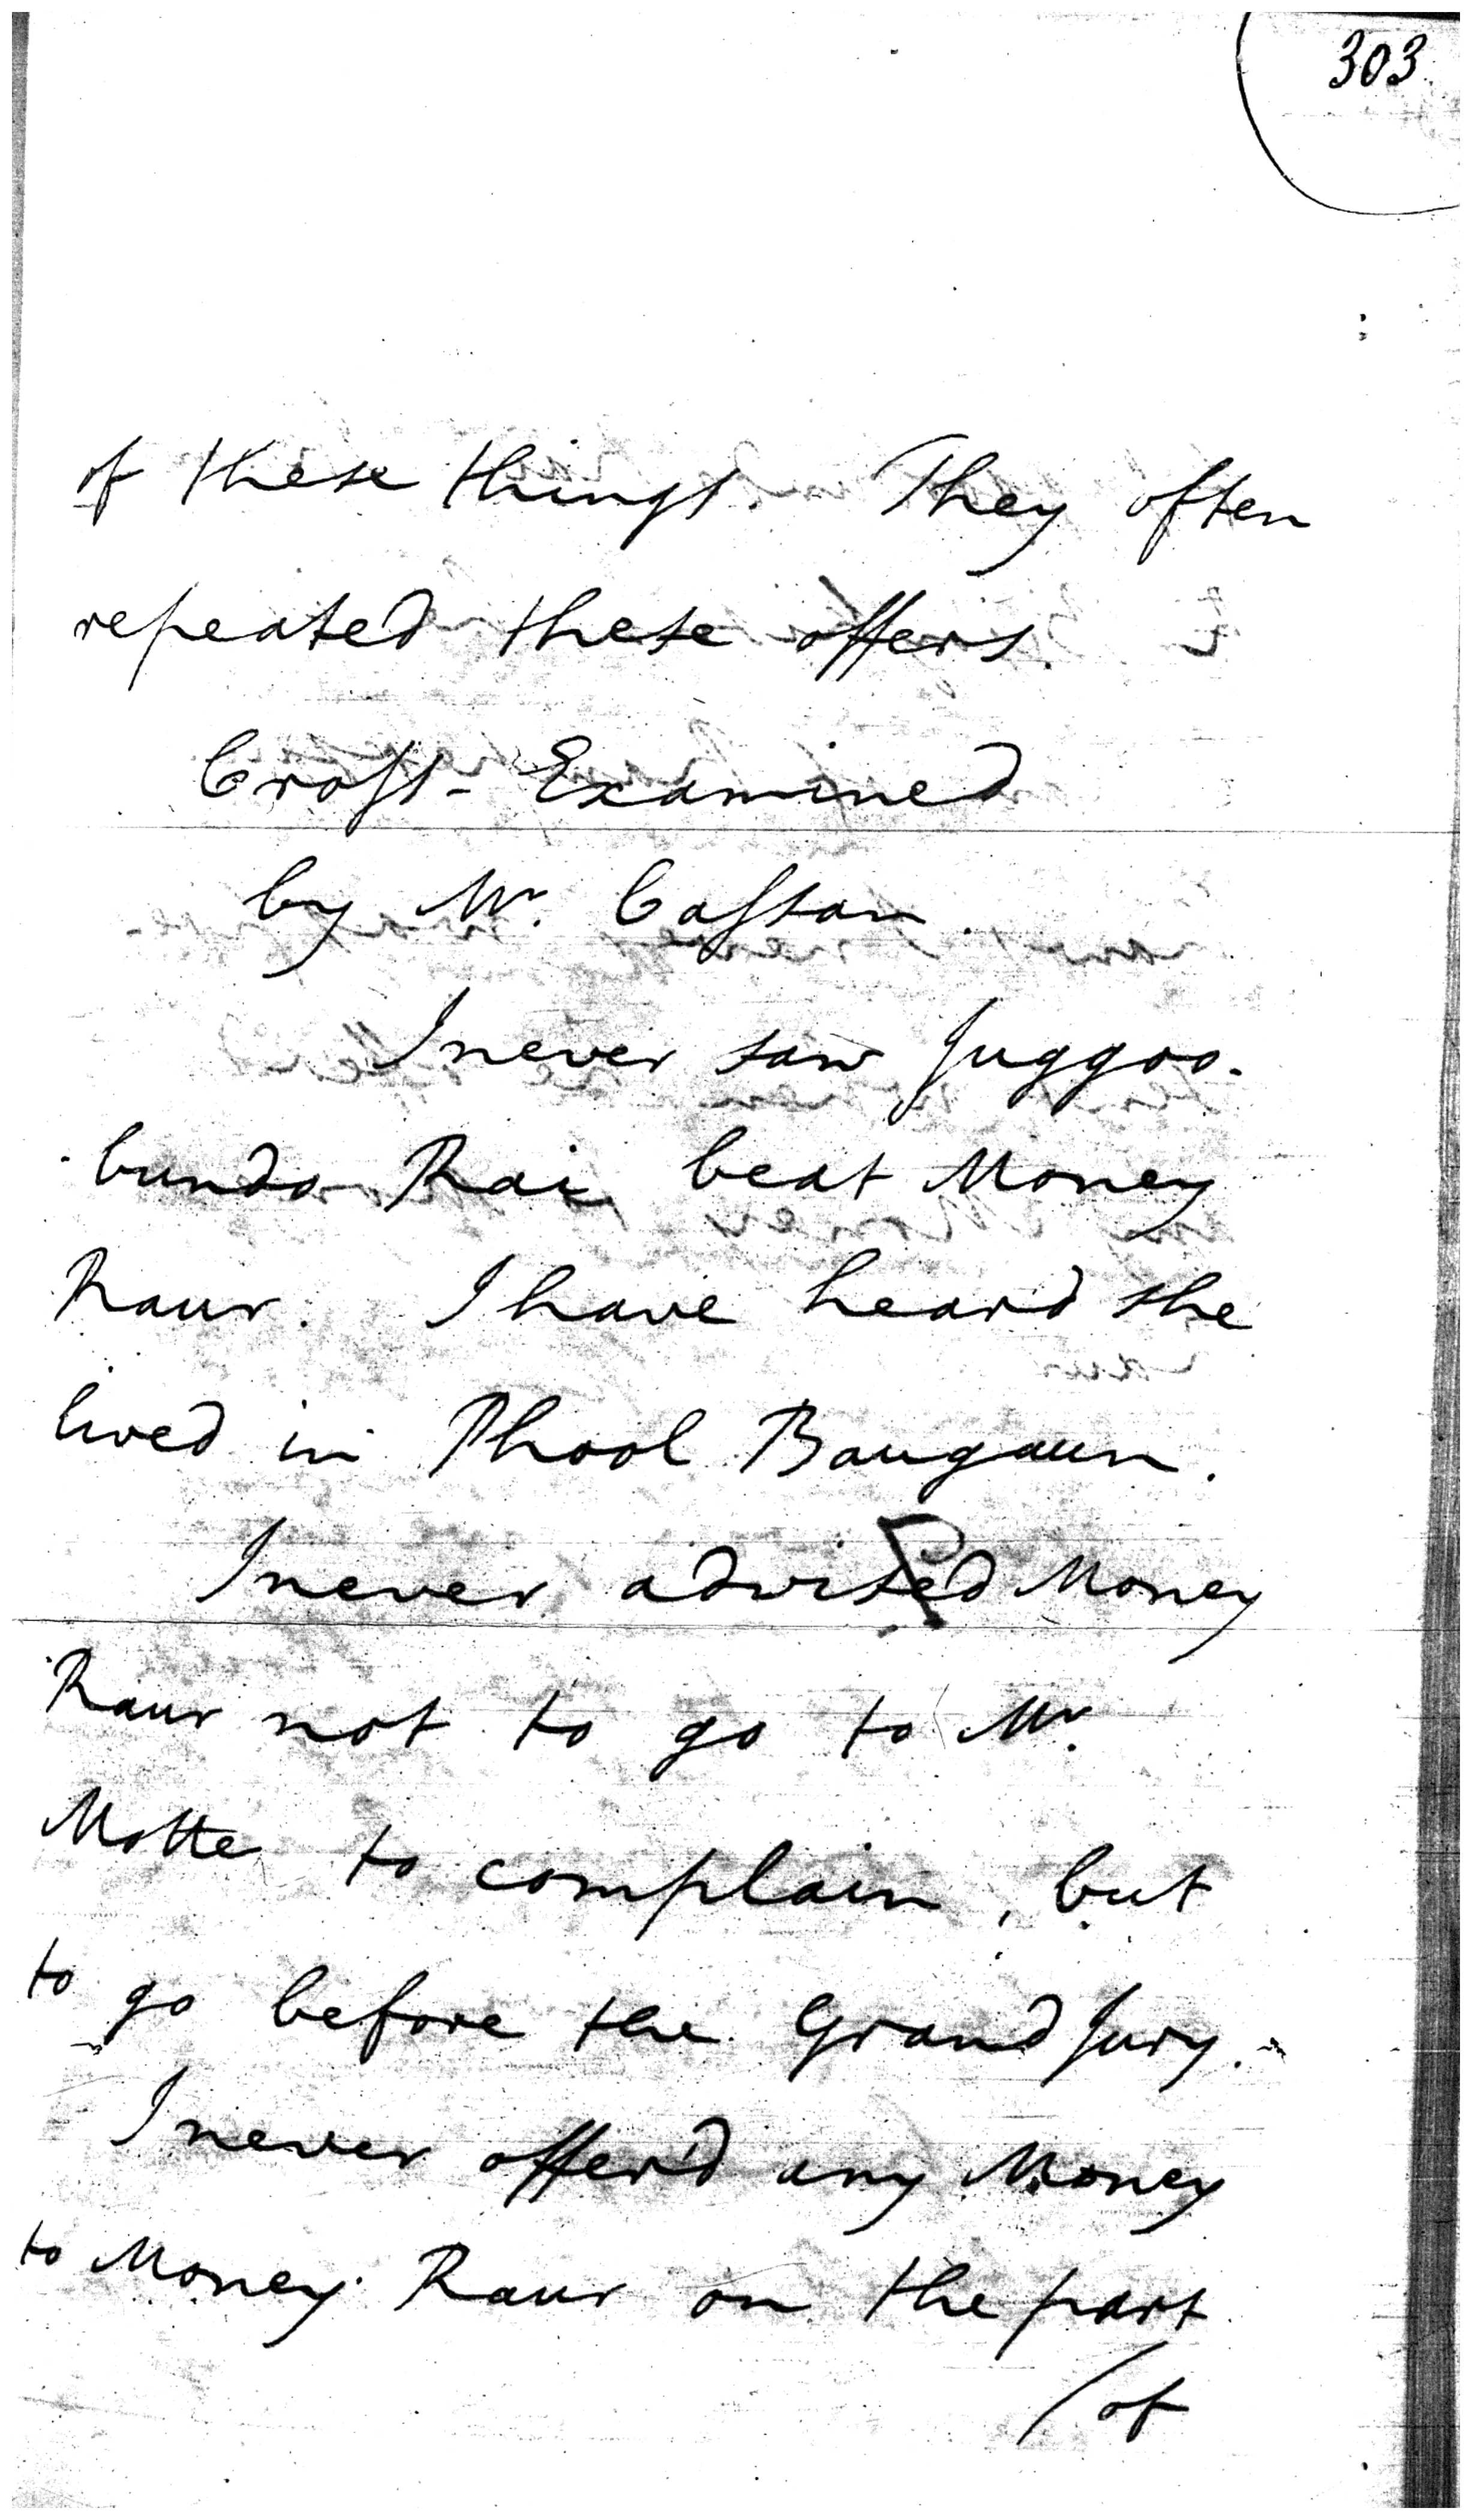 303
of these things. They often
repeated these offers.
Cross-Examined
by Mr. Cassan.
I never saw Juggoo-
-bundo Rai beat Money
Raur. I have heard she
lived in Phool Baugaun.
I never advised Money
Raur not to go to Mr.
Motte to complain, but
to go before the Grand Jury.
I never offer'd any Money
to Money Raur on the part
/of